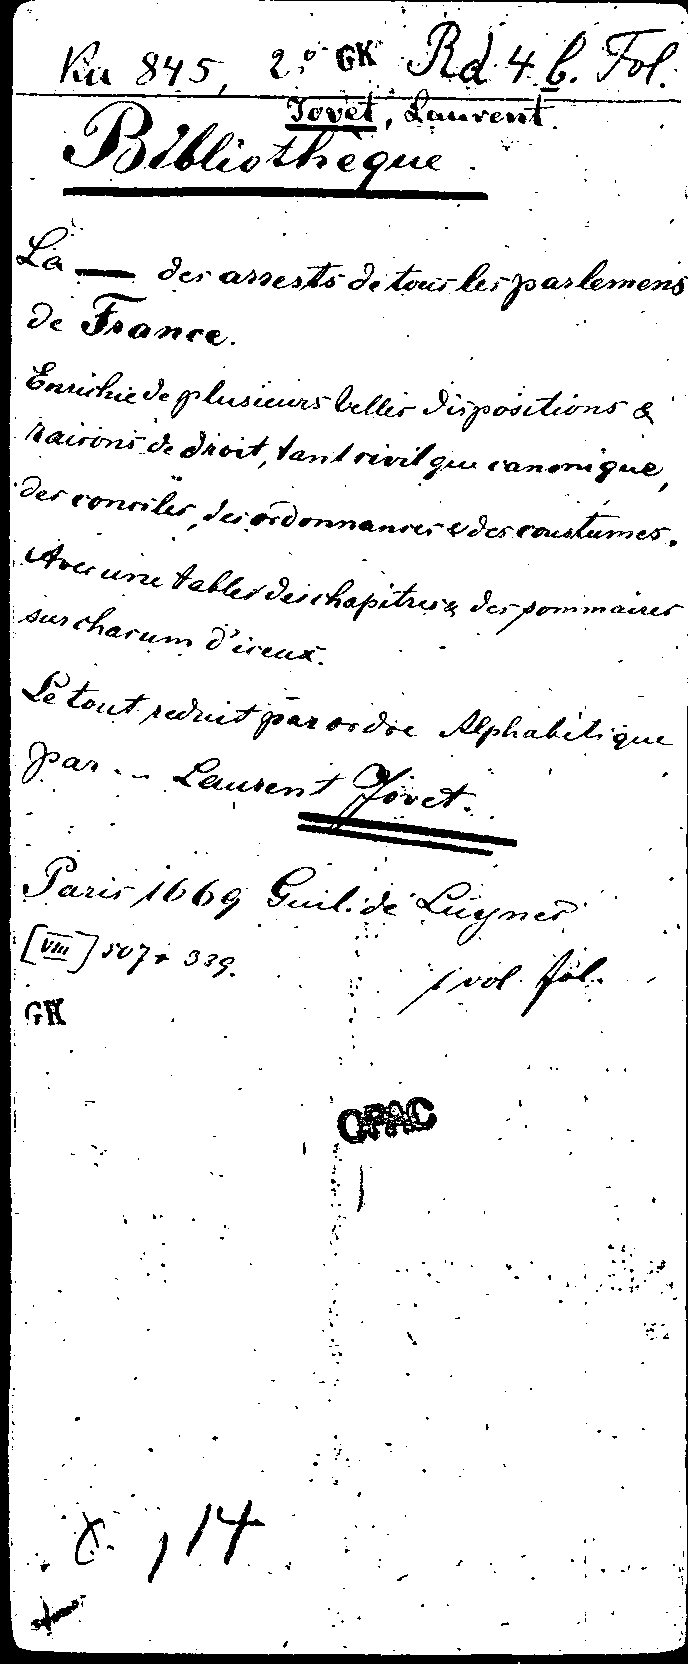 Ku 845, 2° GK Rd 4 b. Fol.
Jovet, Laurent.
Bibliothèque
La — des arrests de tous les parlemens
de France.
Enrichie de plusieurs belles dispositions &
raisons de droit, tant civil que canonique,
des conciles, des ordonnances & des coustumes.
Avec une table des chapitres & des sommaires
sur chacum d'iceux.
Le tout reduit par ordre Alphabétique
par ... Laurent Jovet.
Paris 1669 Guil. de Luynes
[VIII] 507 + 339.
1 vol. fol.
GK
OPAC
8. 114